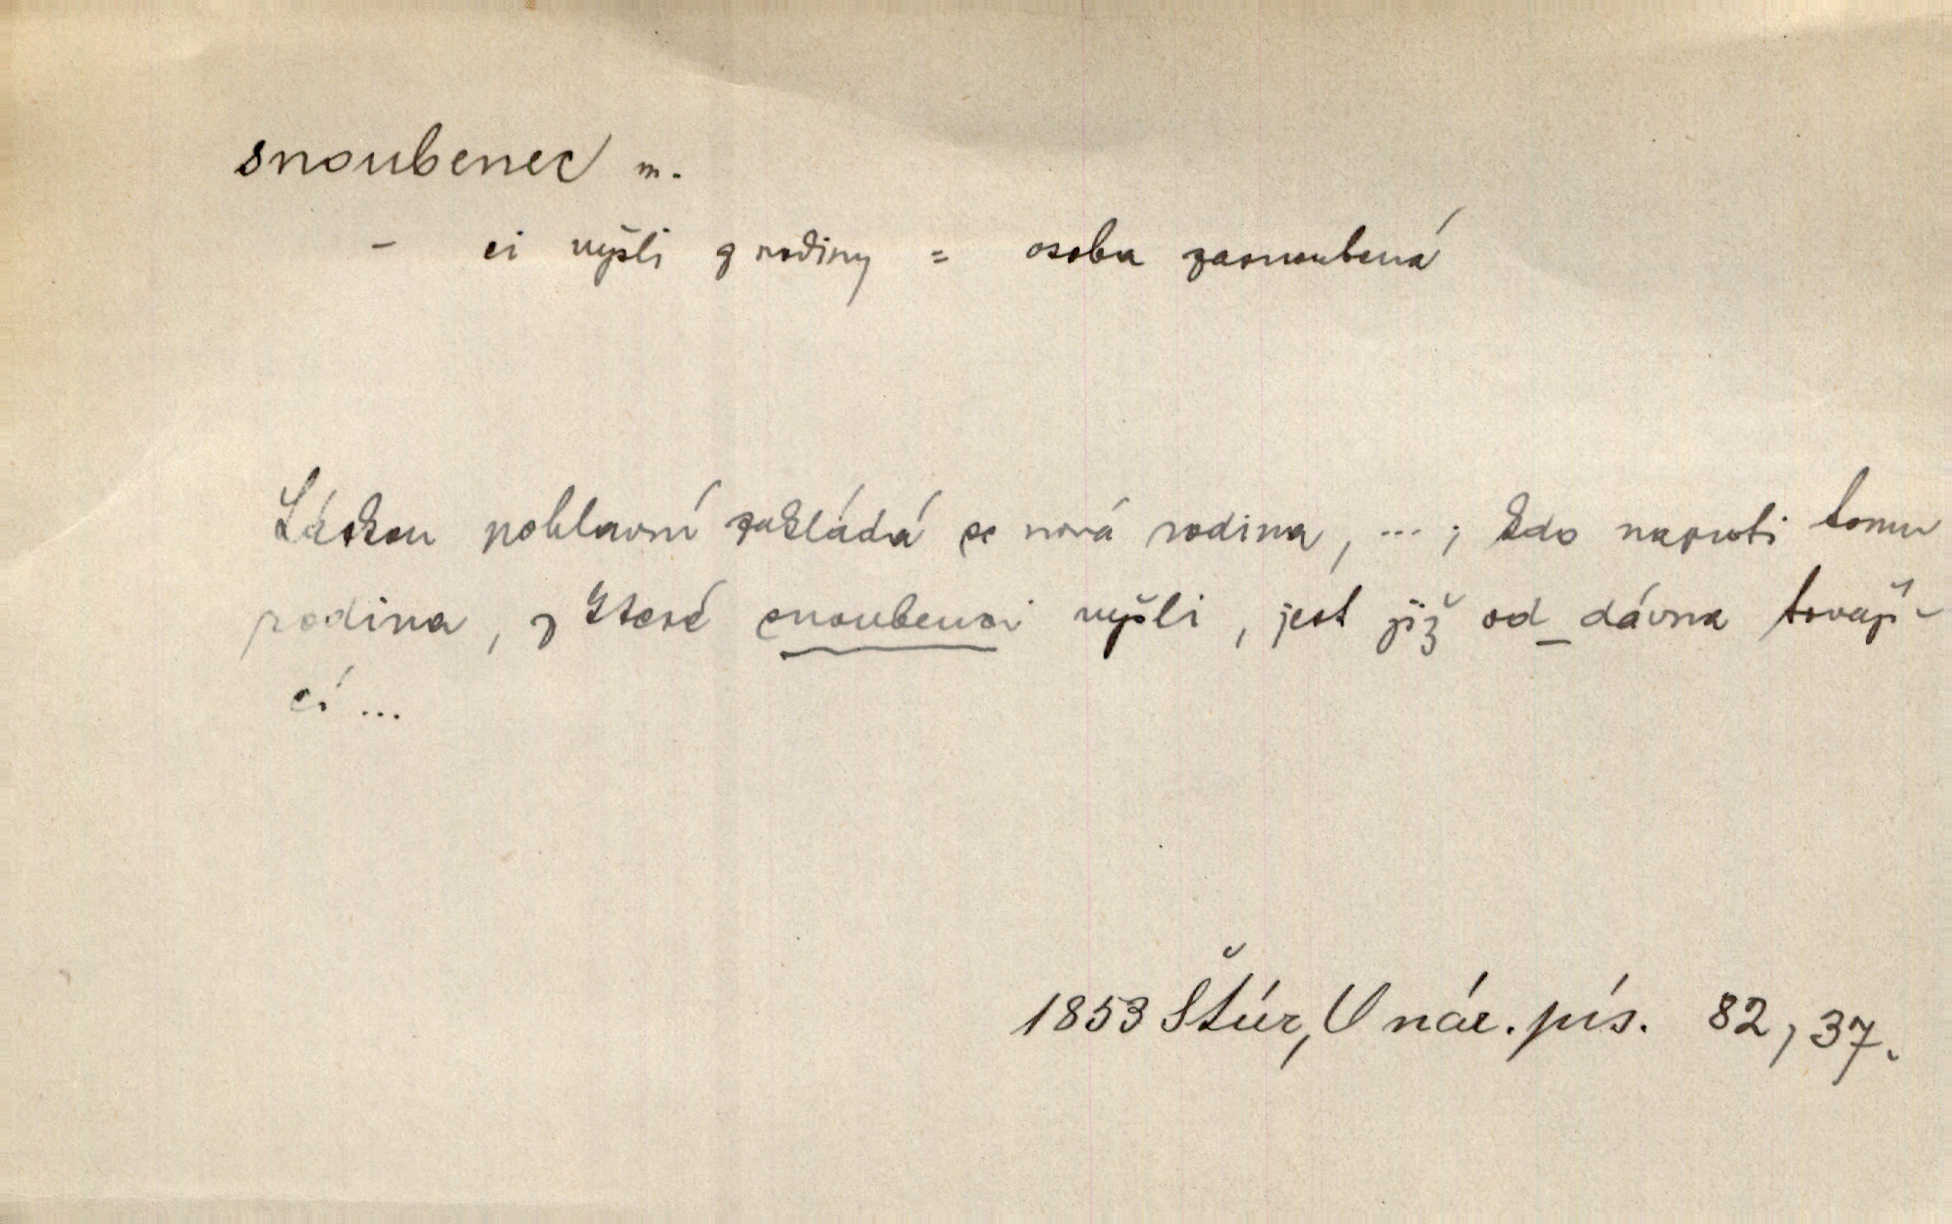 snoubenec m.
- ci vyšli z rodiny = osoba zasnoubená
Láskou pohlavní zakládá se nová rodina, ... ; kdo naproti tomu
rodina, z které snoubenci vyšli, jest již od dávna trvají-
cí ...
1853 Štúr, O nár. pís. 82, 37.